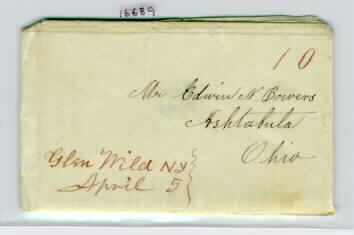 15689
10
Mr Edwin N. Bowers
Ashtabula
Ohio
Glen Wild NY
April 5